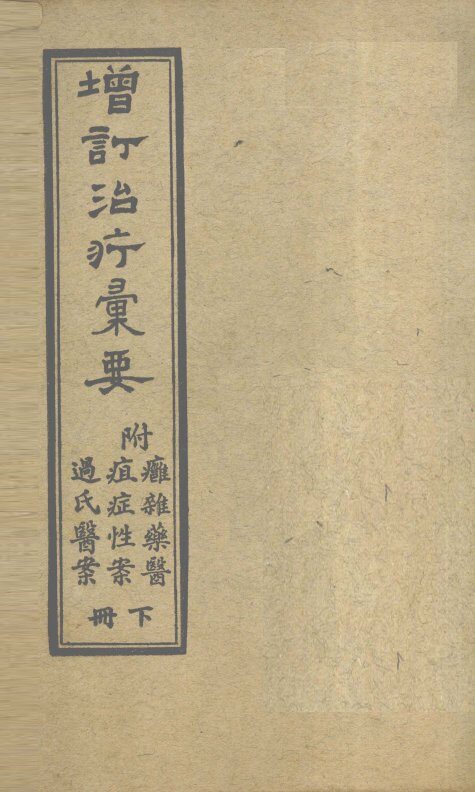 增訂治疔彙要
附
癰疽
雜症
藥性
醫案
過氏醫案
下冊